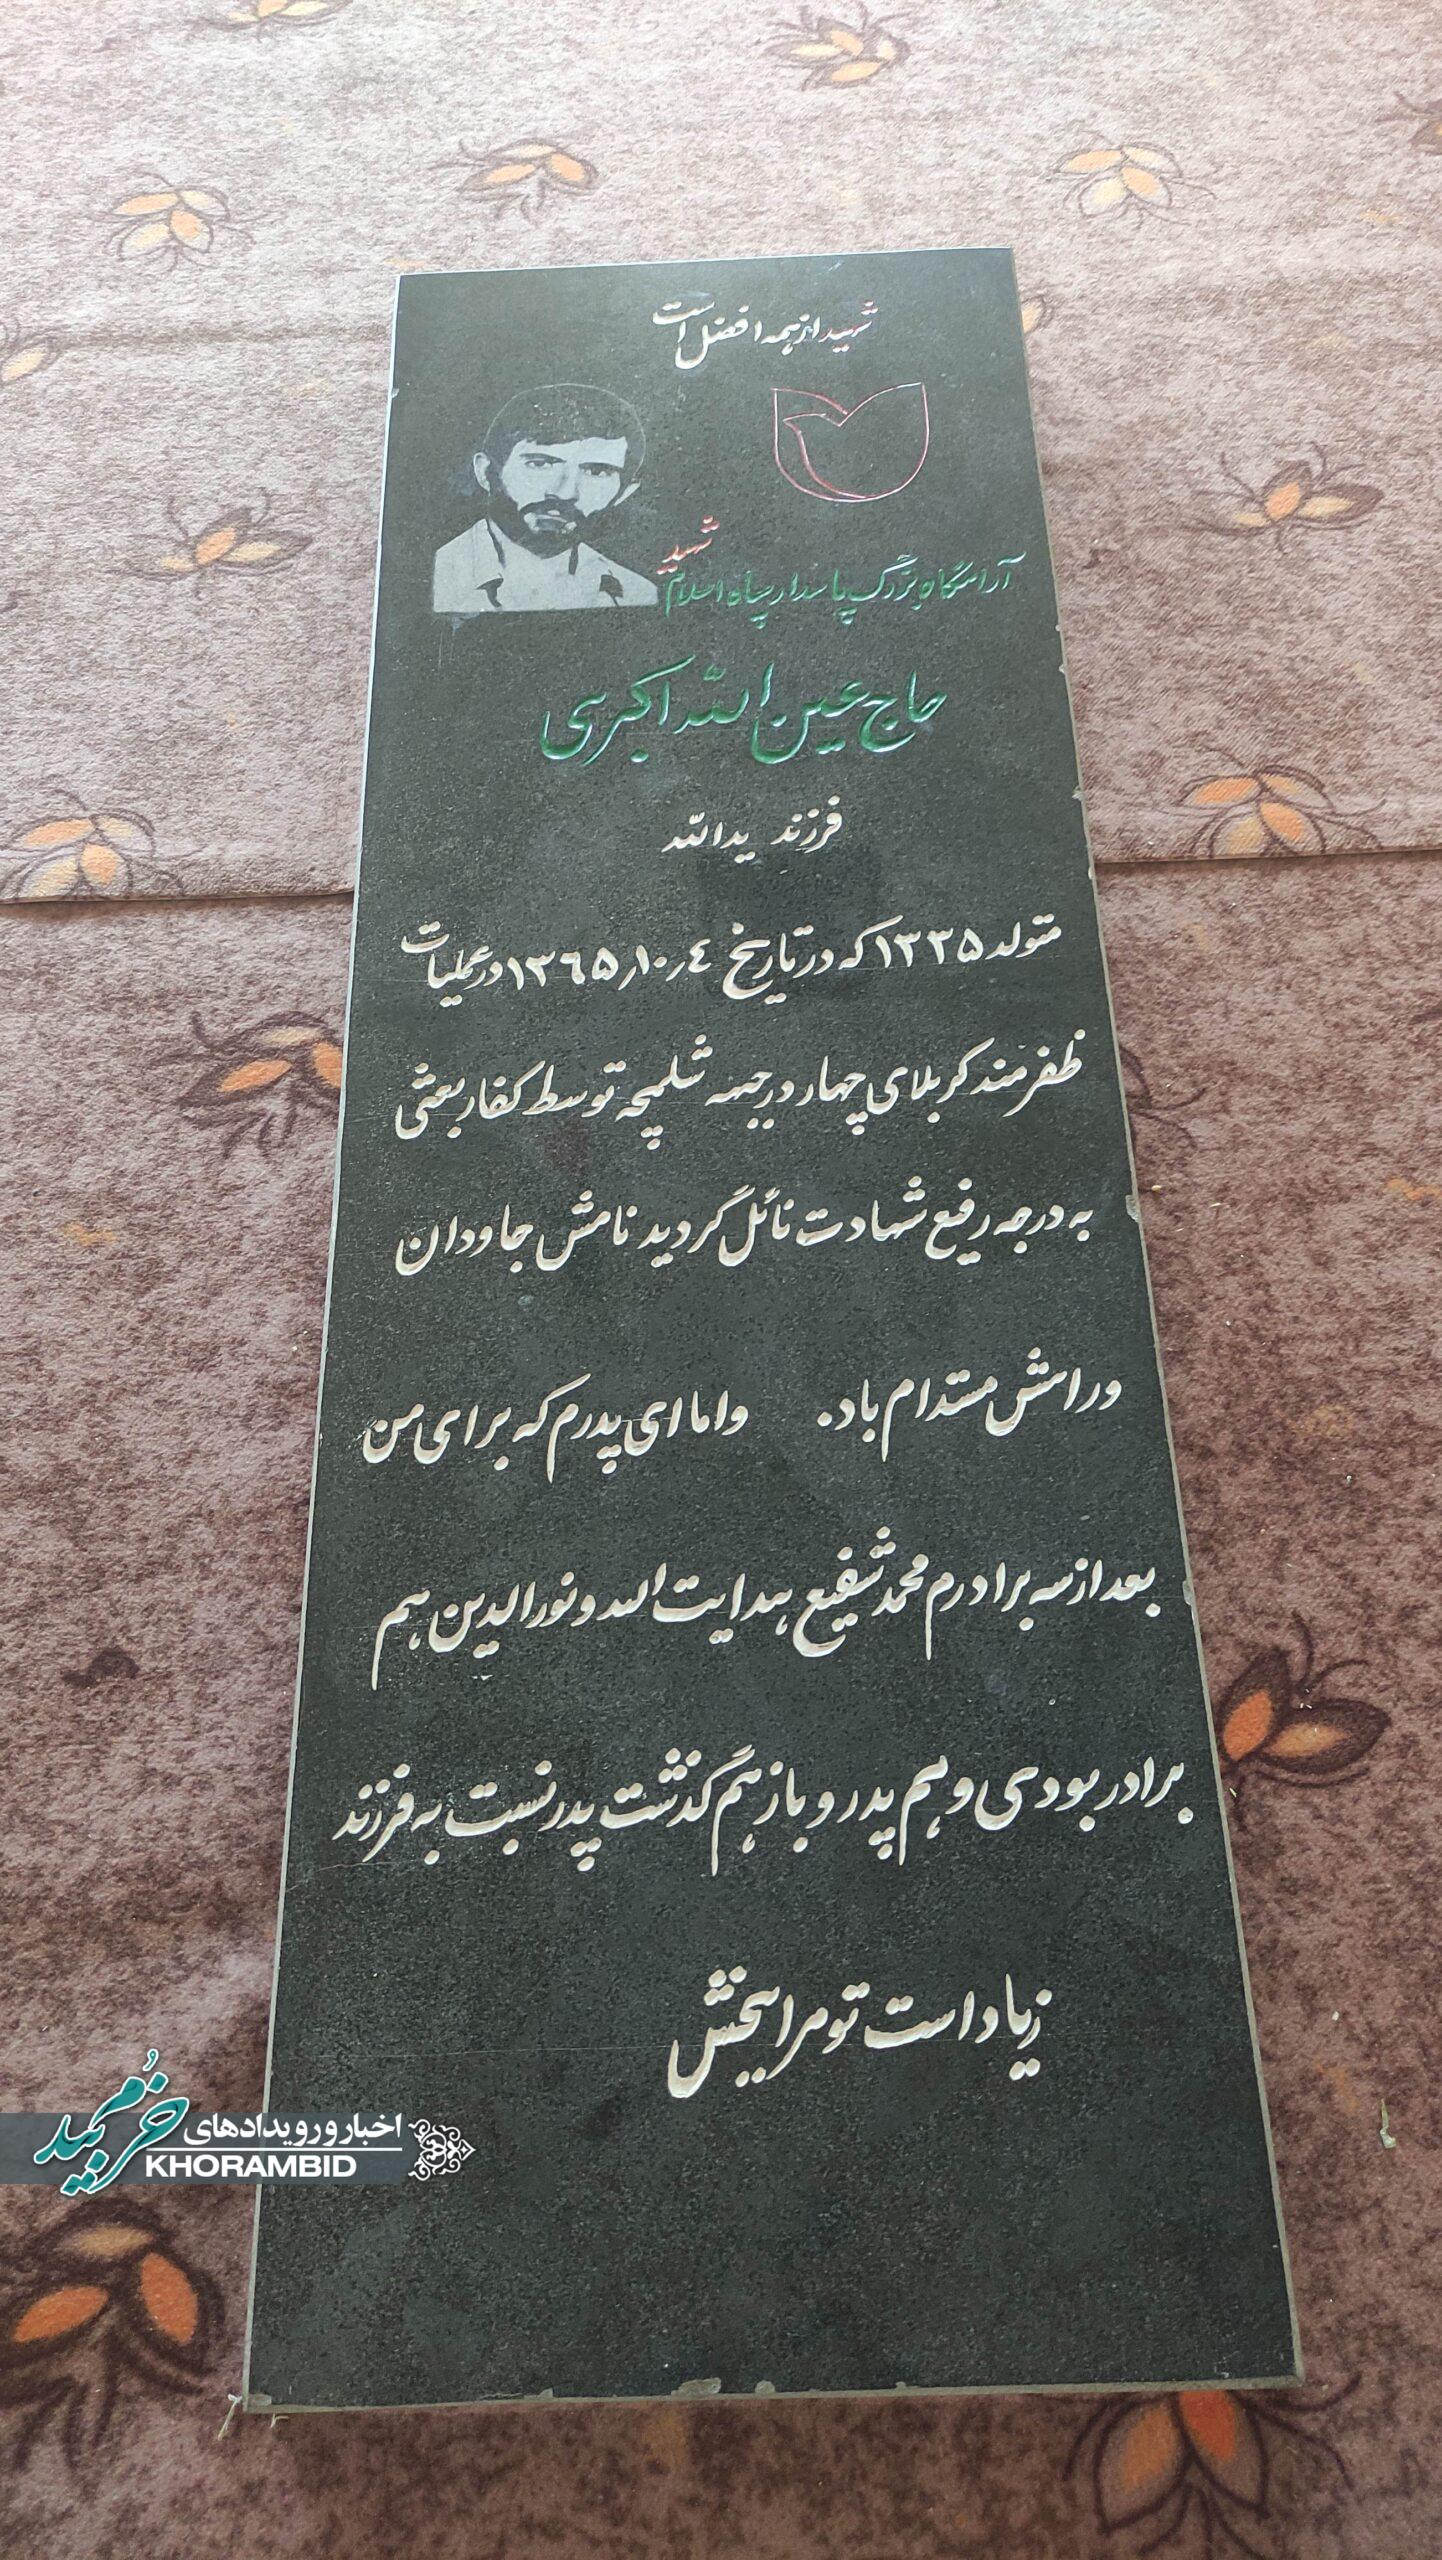 شهید از همه افضل است
شهید
آرامگاه بزرگ پاسدار سپاه اسلام
حاج عین الله اکبری
فرزند یدالله
متولد ۱۳۳۵ که در تاریخ ۱۳٦۵٫۱۰٫٤ در عملیات
ظفرمند کربلای چهار در جبهه شلمچه توسط کفار بعثی
به درجه رفیع شهادت نائل گردید نامش جاودان
و راهش مستدام باد. و اما ای پدرم که برای من
بعد از سه برادرم محمد شفیع هدایت الله و نورالدین هم
برادر بودی و هم پدر و باز هم گذشت پدر نسبت به فرزند
زیاد است تو مرا ببخش
اخبار و رویدادهای
خرمبید
KHORAMBID